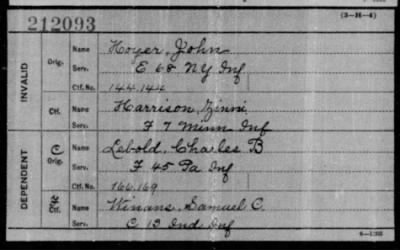 (3-H-4)
212093
INVALID
Orig.
Name Hoyer, John
Serv. E 68 NY Inf
Ctf. No. 144.144
Ctf.
Name Harrison, Zinni
Serv. F 7 Minn Inf
DEPENDENT
C Orig.
Name Lebold, Charles B
Serv. F 45 Pa Inf
Ctf. No. 166.169
Ctf.
Name Winans, Samuel C.
Serv. C 13 Ind Inf